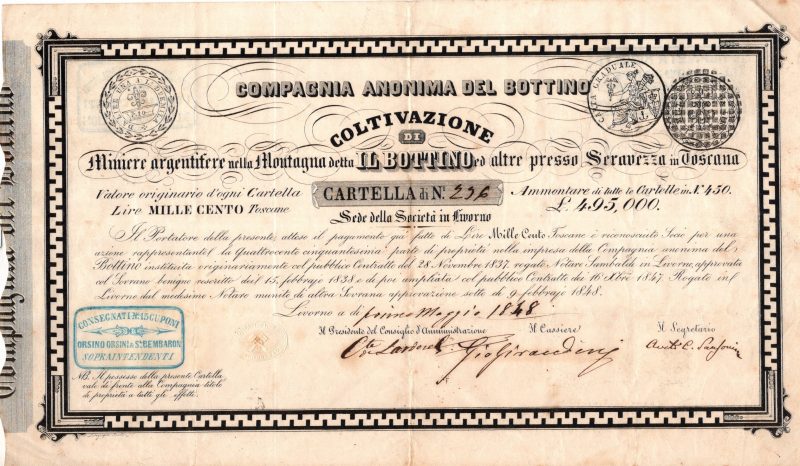 COMPAGNIA ANONIMA DEL BOTTINO
COLTIVAZIONE
DI
Miniere argentifere nella Montagna detta IL BOTTINO ed altre presso Seravezza in Toscana
Valore originario d'ogni Cartella
Lire MILLE CENTO Toscane
CARTELLA di N.º 236
Ammontare di tutte le Cartelle in N.º 450.
£. 495,000.
Sede della Società in Livorno
Il Portatore della presente, atteso il pagamento già fatto di Lire Mille Cento Toscane è riconosciuto Socio per una
azione rappresentante la Quattrocento cinquantesima parte di proprietà nella impresa della Compagnia anonima del
Bottino instituita originariamente col pubblico Contratto del 28 Novembre 1837, rogato Notaro Sambaldi in Livorno, approvata
col Sovrano benigno rescritto del 15, febbrajo 1838 e di poi ampliata col pubblico Contratto dei 16 Xbre 1847, Rogato in
Livorno dal medesimo Notaro munito di altra Sovrana approvazione sotto di 9 febbrajo 1848.
Livorno a dì primo Maggio 1848
Il Presidente del Consiglio d'Amministrazione
Il Cassiere
Il Segretario
CONSEGNATI N. 15 CUPONI
ORSINO ORSINI & S. BEMBARON
SOPRAINTENDENTI
NB. Il possesso della presente Cartella
vale di fronte alla Compagnia titolo
di proprietà a tutti gli effetti.
LEGGE GRADUALE
Compagnia del Bottino